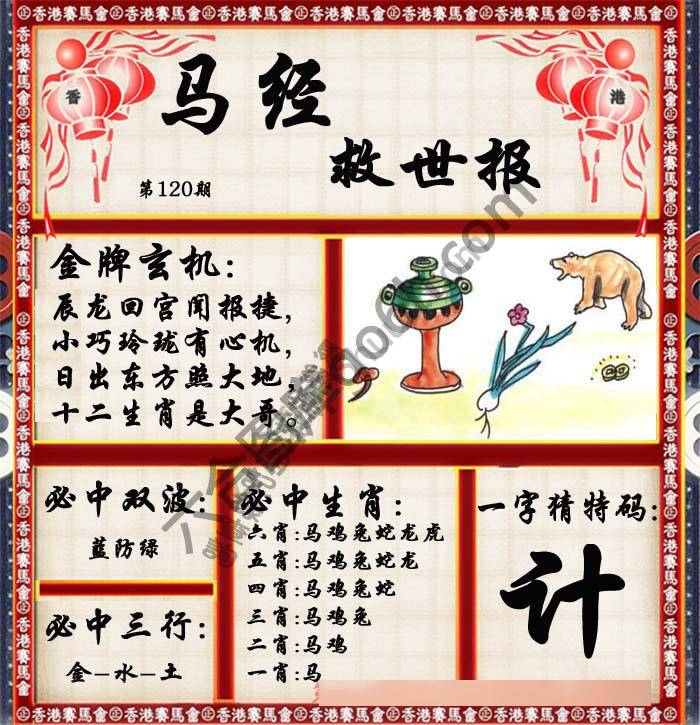 香港賽馬會㊣香港賽馬會㊣香港賽馬會㊣香港賽馬會㊣香港賽馬會㊣香港賽馬會
香
港
马经
救世报
第120期
金牌玄机:
辰龙回宫闻报捷,
小巧玲珑有心机,
日出东方照大地,
十二生肖是大哥。
必中双波:
蓝防绿
必中三行:
金-水-土
必中生肖:
六肖:马鸡兔蛇龙虎
五肖:马鸡兔蛇龙
四肖:马鸡兔蛇
三肖:马鸡兔
二肖:马鸡
一肖:马
一字猜特码:
计